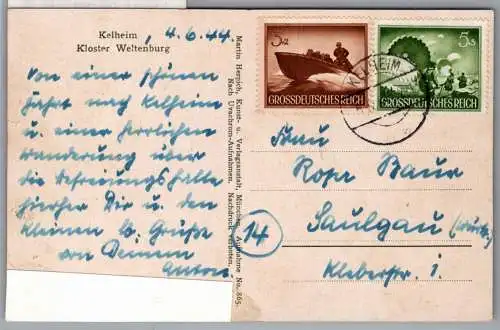 Kelheim
Kloster Weltenburg
4.6.44.
Von einer schönen
Fahrt nach Kelheim
u. einer herrlichen
Wanderung über
die Befreiungshalle
hierher Dir u. den
Kleinen b. Grüße
von Deinem
Anton
Martin Herpich, Kunst- u. Verlagsanstalt, München. Aufnahme No. 365.
Nach Uvachrom-Aufnahmen. Nachdruck verboten.
3+2
GROSSDEUTSCHES REICH
5+3
GROSSDEUTSCHES REICH
KELHEIM
Frau
Rosa Baur
14
Saulgau (Württ.)
Kleberstr. 1.